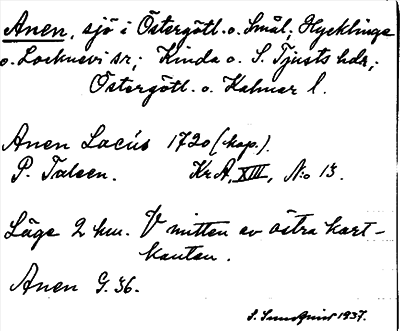 Anen, sjö i Östergötl. o. Smål; Hycklinge
o. Locknevi sr; Kinda o. S. Tjusts hdr;
Östergötl. o. Kalmar l.
Anen Lacus 1720 (kop.).
P. Taleen. Kr A, XIII, No 13.
Läge 2 km. V mitten av östra kart-
kanten.
Anen G. 36.
S. Sundqvist 1937.